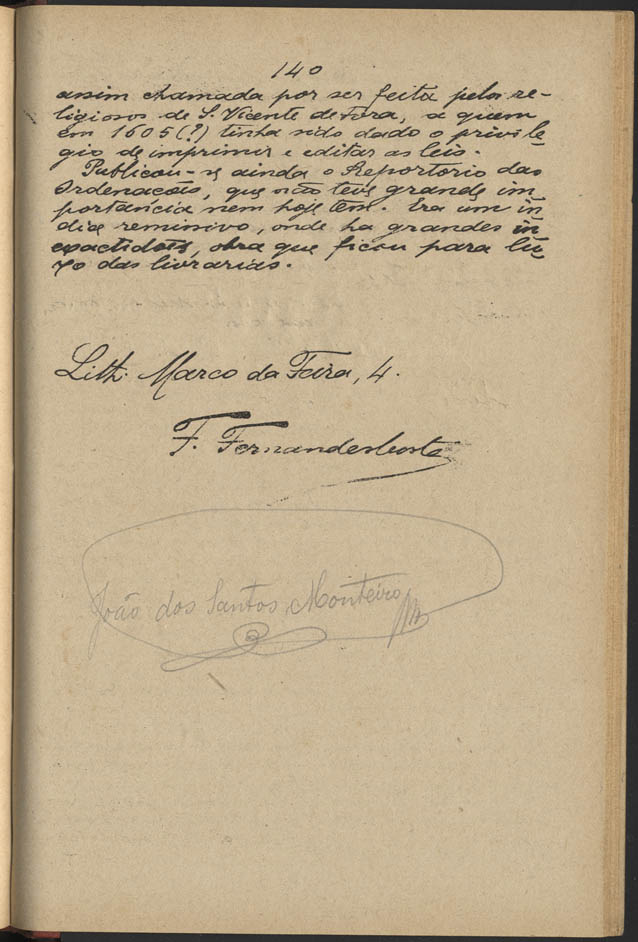 140
assim chamada por ser feita pelos re-
ligiosos de S. Vicente de Fora, a quem
em 1605(?) tinha sido dado o privile
gio de imprimir e editar as leis.
Publicou-se ainda o Reportorio das
Ordenações, que não teve grande im
portancia nem hoje tem. Era um in
dice remissivo, onde ha grandes in
exactidões, obra que ficou para lu
xo das livrarias.
Lith. Marco da Feira, 4.
F. Fernandes Costa
João dos Santos Monteiro